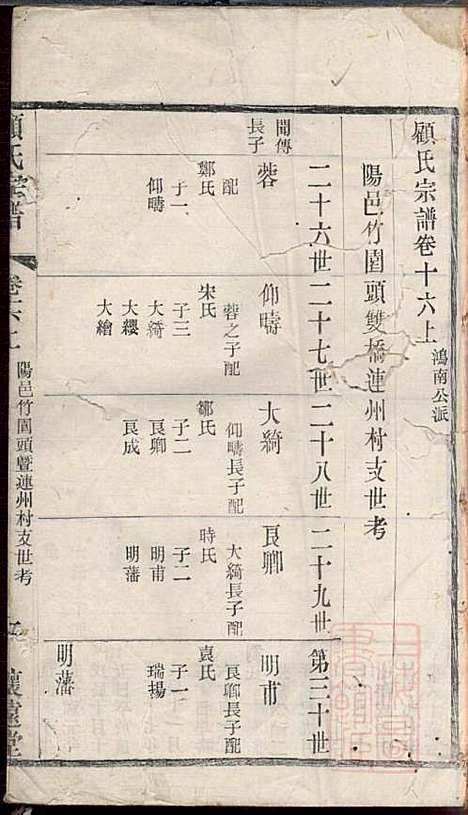 顧氏宗譜卷十六上 鴻南公派
陽邑竹園頭雙橋連州村支世考
二十六世
二十七世
二十八世
二十九世
第三十世
聞傳
長子
蓉
配
鄭氏
子一
仰疇
仰疇
蓉之子配
宋氏
子三
大綺
大纓
大繪
大綺
仰疇長子配
鄒氏
子二
艮卿
艮成
艮卿
大綺長子配
時氏
子二
明甫
明藩
明甫
艮卿長子配
袁氏
子一
瑞揚
明藩
顧氏宗譜
陽邑竹園頭暨連州村支世考